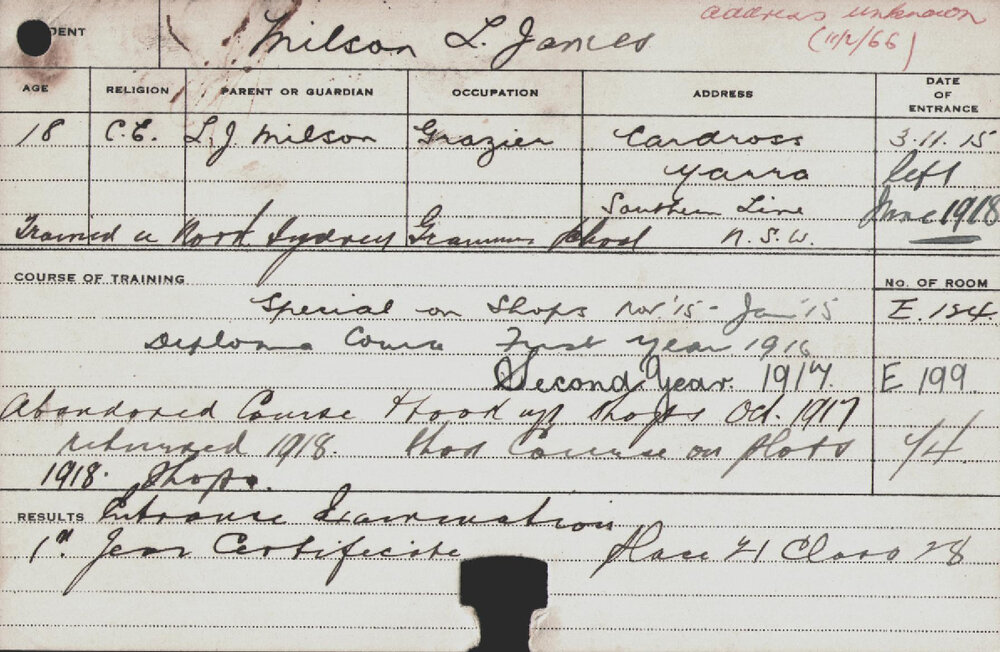 DENT Milson L. James
address unknown
(11/2/66)
AGE RELIGION PARENT OR GUARDIAN OCCUPATION ADDRESS DATE OF ENTRANCE
18 C.E. L. J. Milson Grazier Cardross 3.11.15
Yarra left
Southern Line June 1918
Trained a North Sydney Grammar School N.S.W.
COURSE OF TRAINING NO. OF ROOM
Special on Shops Nov '15 - Jan '15 E. 124.
Diploma Course First Year 1916
Second Year. 1917. E 199
Abandoned Course & took up Shops Oct. 1917
returned 1918. Shop Course on Plots 4/4.
1918. Shops.
RESULTS Entrance Examination
1st Year Certificate Place 21 Class 28